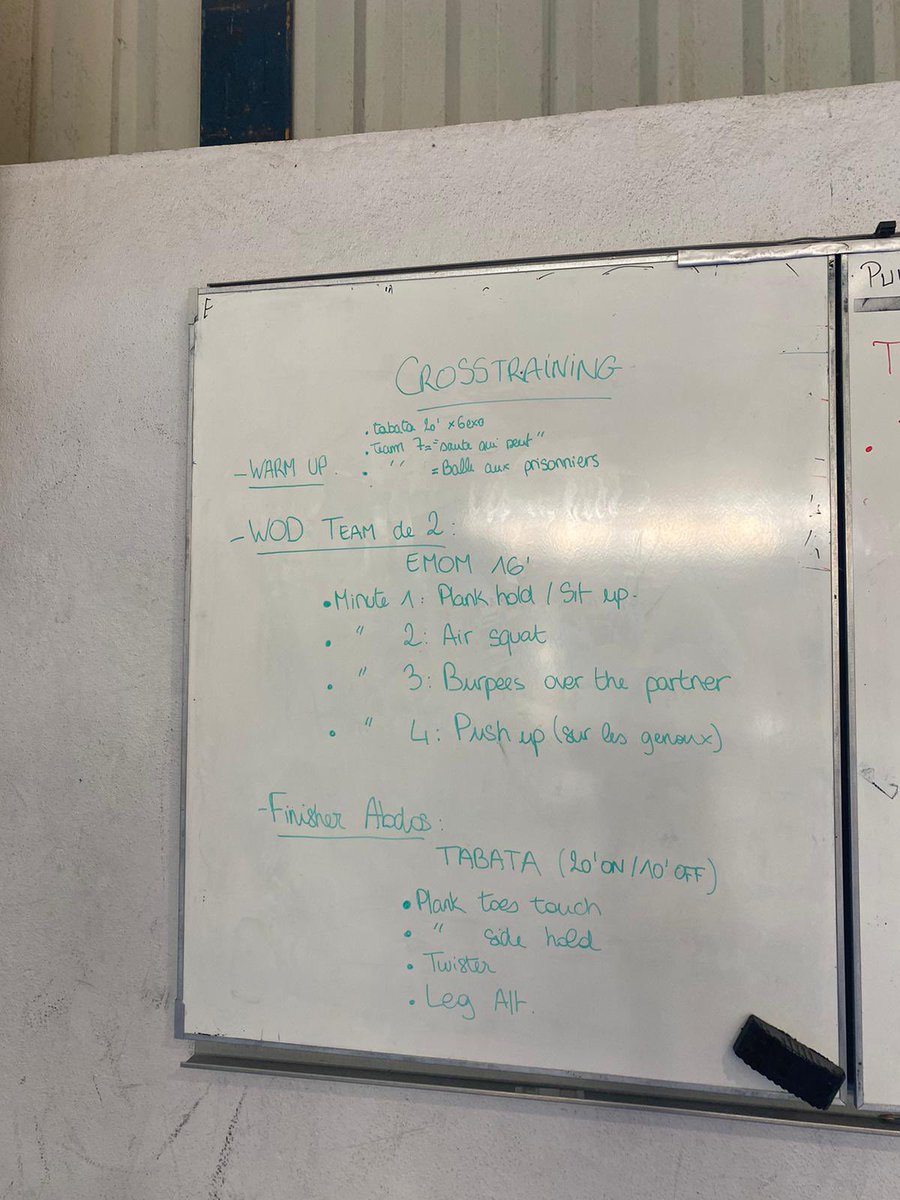 E
CROSSTRAINING
. tabata 20' x6exo
. Team 7="saute qui peut"
- WARM UP . " = Balle aux prisonniers
- WOD TEAM de 2 :
EMOM 16'
• Minute 1 : Plank hold / Sit up.
. " 2 : Air squat
. " 3 : Burpees over the partner
. " 4 : Push up (sur les genoux)
- Finisher Abdos :
TABATA (20' ON / 10' OFF)
• Plank toes touch
. " side hold
. Twister
. Leg Alt.
T